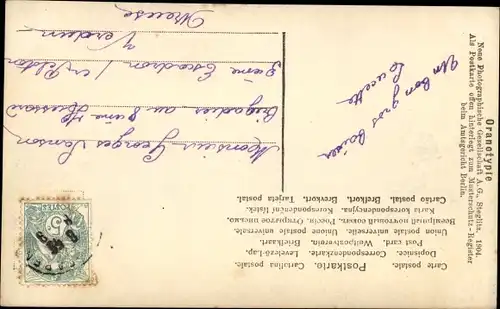 Carte postale. Postkarte. Cartolina postale.
Dopisnice. Correspondenzkarte. Levelező-Lap.
Post card. Weltpostverein. Briefkaart.
Union postale universelle. Unione postale universale.
Karta Korespondencyjna. Korespondenční lístek.
Cartão postal. Brefkort. Brevkort. Tarjeta postal.
Monsieur Georges
Brigadier au 8eme Hussard
3eme Escadron 1er Peloton
Verdun
Meuse
Un bon
gros baiser
Lucette
5
POSTES
Oranotypie
Neue Photographische Gesellschaft A.G., Steglitz, 1904.
Als Postkarte offen hinterlegt zum Musterschutz-Register
beim Amtsgericht Berlin.